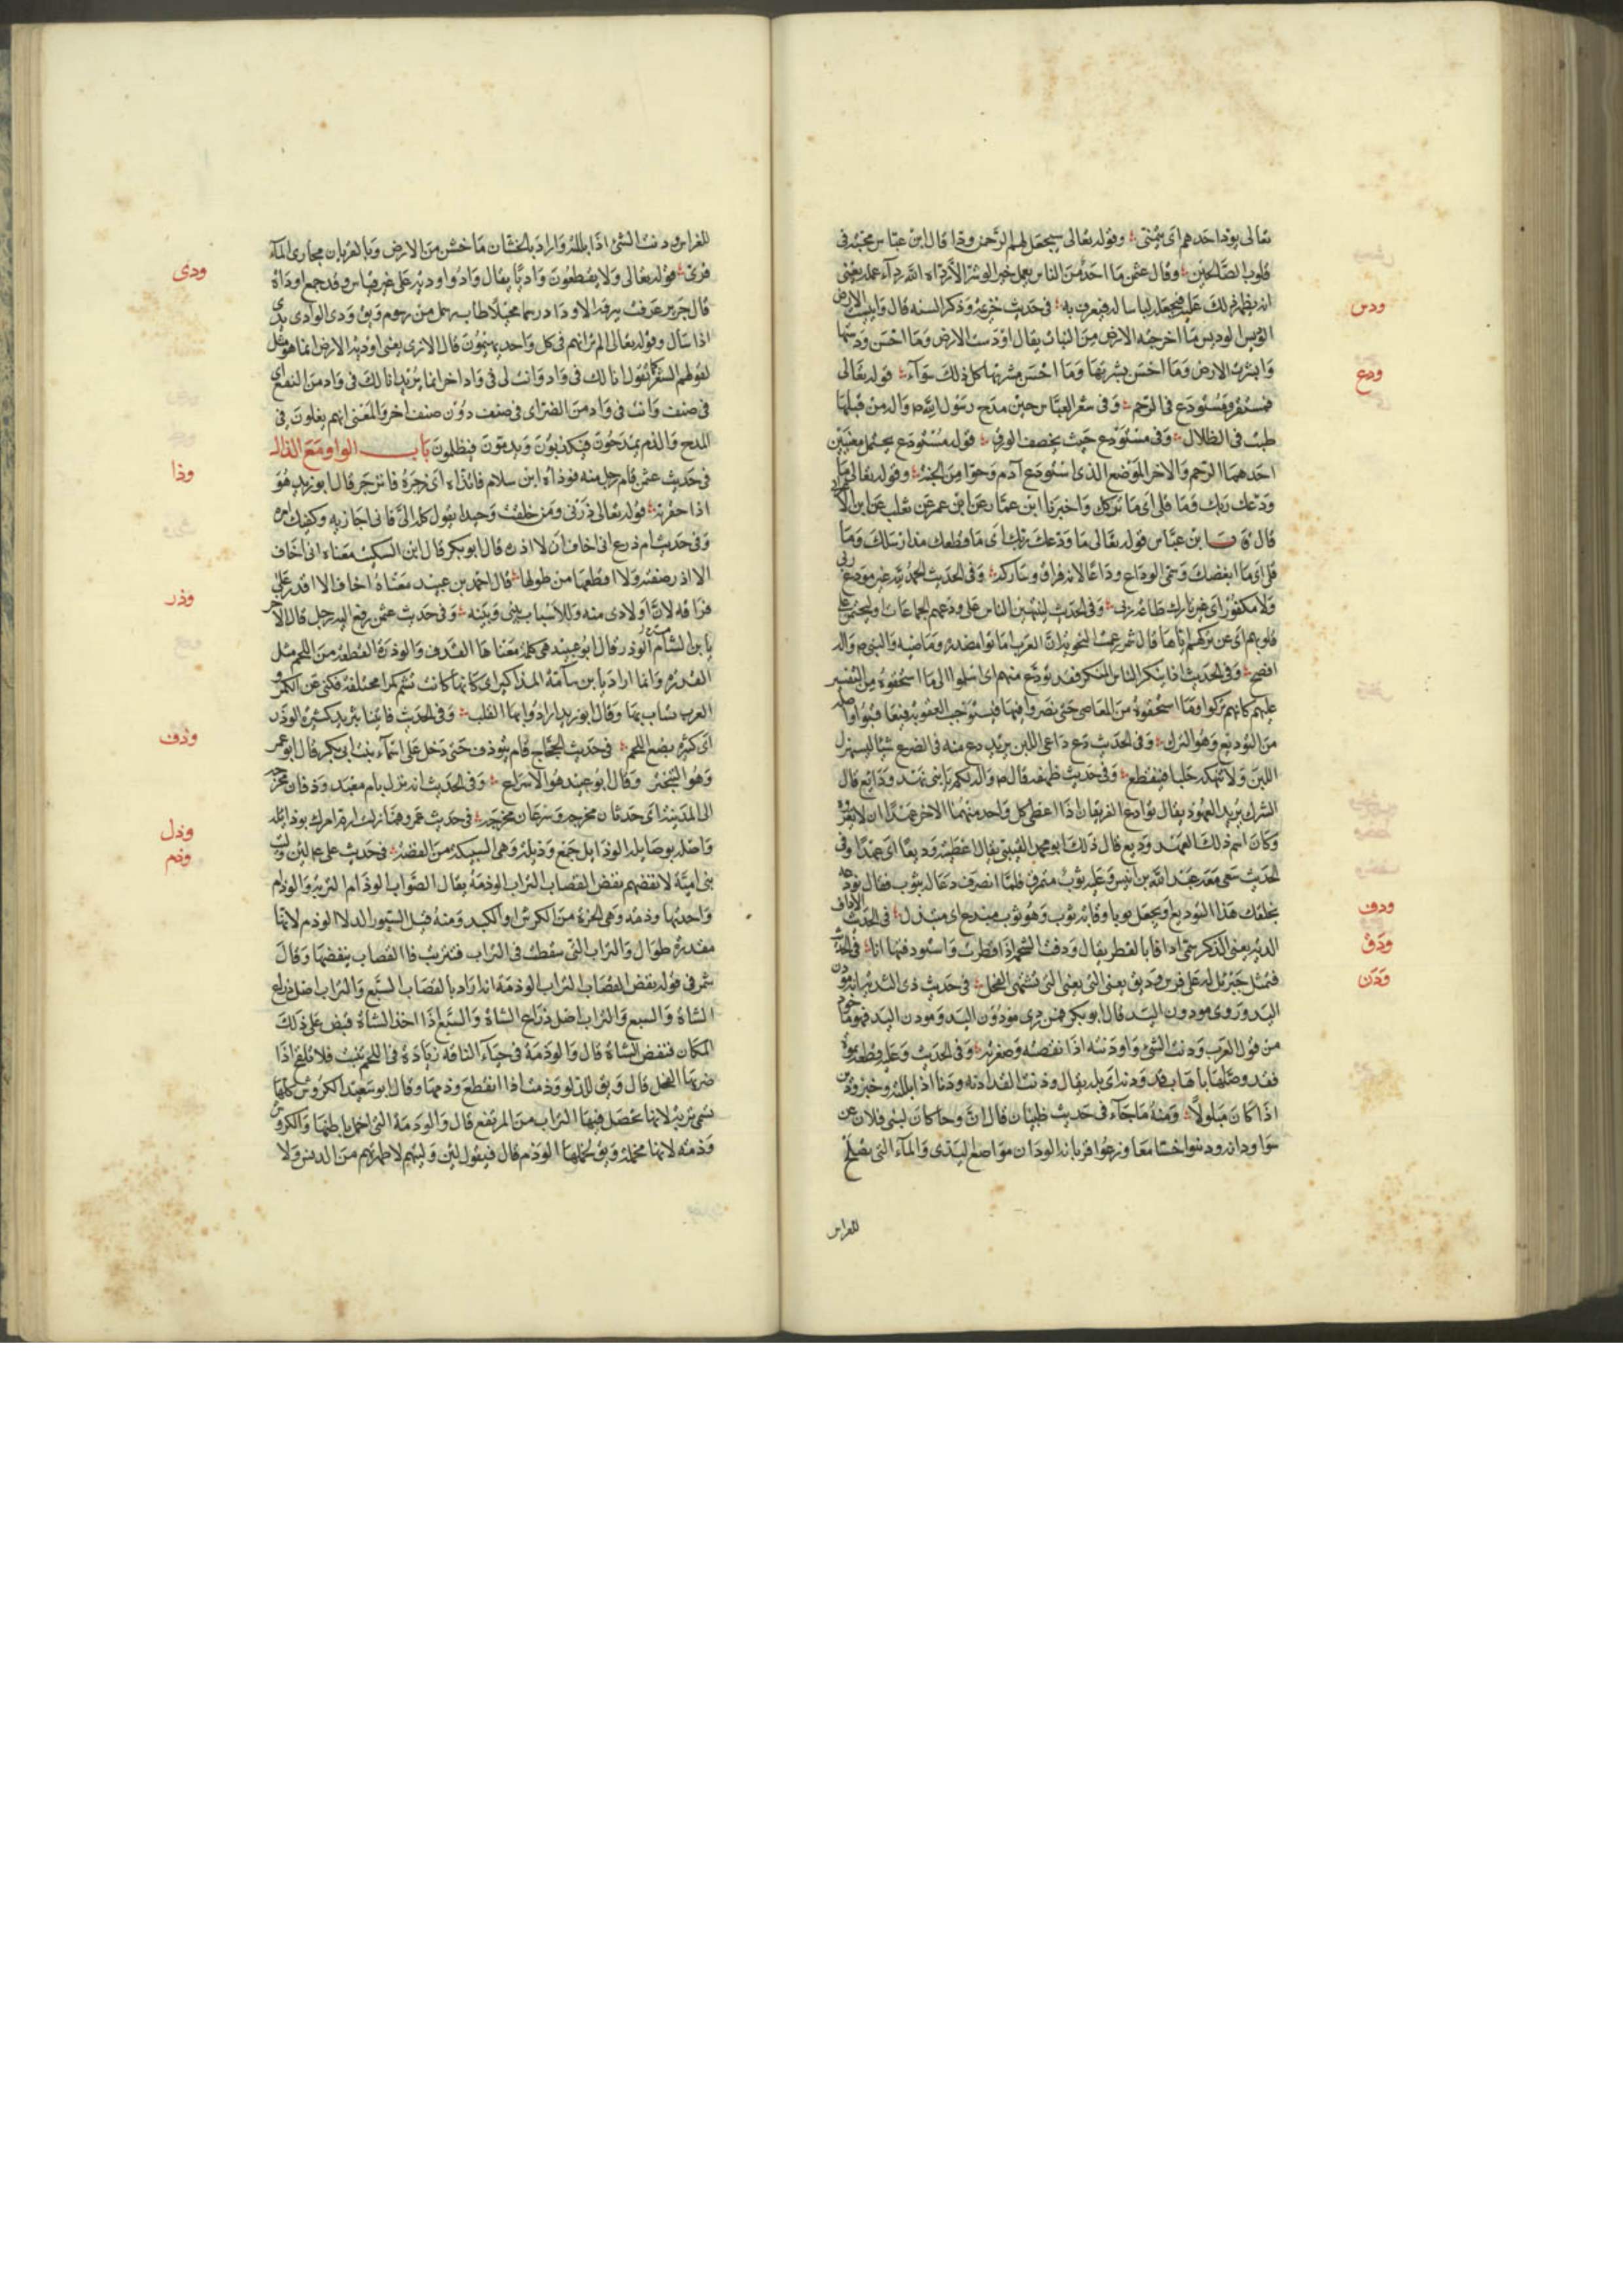 تعالى يودا احدهم اى يتمنى وقوله تعالى سيجعل لهم الرحمن ودا قال ابن عباس محبة فى
قلوب الصالحين وقال عثمن ما احد من الناس يعمل خيرا او شرا الا رداه الله رداء عمله يعنى
ودس
انه يظهر ذلك عليه فيجعل لباسا له فيعرف به فى حديث خزيمة وذكر السنة قال وايبست الارض
الوديس الوديس ما اخرجته الارض من النبات يقال اودست الارض وما احسن ودسها
ودع
وابشرت الارض وما احسن بشرتها وما احسن مشرتها كل ذلك سواء قوله تعالى
فمستقر ومستودع فى الرحم وفى شعر العباس حين مدح رسول الله من قبلها
طبت فى الظلال وفى مستودع حيث يخصف الورق قوله مستودع يحتمل معنيين
احدهما الرحم والاخر الموضع الذى استودع آدم وحوا من الجنة وقوله تعالى ما
ودعك ربك وما قلى اى ما تركك واخبرنا ابن عمار عن ابن عمر عن ثعلب عن ابن الاعرابى
قال ابن عباس قوله تعالى ما ودعك ربك اى ما قطعك منذ ارسلك وما
قلى اى ما ابغضك وسمى الوداع وداعا لانه فراق ومتاركة وفى الحديث الحمد لله غير مودع ربى
ولا مكفور اى غير تارك طاعة ربى وفى الحديث لينتهين الناس على ودعهم الجماعات او ليختمن على
قلوبهم اى عن تركهم اياها قال شمر زعمت النحوية ان العرب اماتوا مصدره وماضيه والنبى
افصح وفى الحديث اذا لم ينكر الناس المنكر فقد تودع منهم اى اسلموا الى ما استحقوه من التغيير
عليهم كانهم تركوا وما استحقوه من المعاصى حتى يصروا فيها فيستوجبوا العقوبة فيعاقبوا واصله
من التوديع وهو الترك وفى الحديث دع داعى اللبن يريد دع منه فى الضرع شيا ليستنزل
اللبن ولا تنهكه حلبا فينقطع وفى حديث طهفة قال لكم يا بنى نهد ودائع قال
الشرك يريد العهود يقال توادع الفريقان اذا اعطى كل واحد منهما الاخر عهدا ان لا يغزوه
وكان اسم ذلك العهد وديع قال ذلك ابو محمد القتيبى يقال اعطيته وديعا اى عهدا وفى
الحديث سعى معه عبد الله بن انيس وعليه ثوب متمزق فلما انصرف دعا له بثوب فقال تودعه
ودف
بخلقك هذا التوديع ان يجعل ثوبا وقاية ثوب وهو ثوب ميدع اى مبتذل فى الحديث الاداف
ودق
الدية يعنى الذكر سمى ادافا بالقطر يقال ودفت الشحمة اذا قطرت واستودفتها انا فى الحديث
ودن
فتمثل جبرئيل له على فرس وديق يعنى التى تشتهى الفحل فى حديث ذى الثدية انه مودن
اليد وروى مودون اليد قال ابو بكر فمن روى مودون اليد ومودن اليد فهو ماخوذ
من قول العرب ودنت الشئ واودنته اذا نقصته وصغرته وفى الحديث وعليه قطعة نمرة
فقد وصلها باهاب قد ودنه اى بله يقال ودنت القد ادنه ودنا اذا بللته وخبز ودن
اذا كان مبلولا ومنه ما جاء فى حديث ظبيان قال ان وجا كان لبنى فلان عن
سوا ودانه ودنوا خشانه ورعوا قربانه الودان مواضع الندى والماء التى تصلح
للغراس
للغراس ودنت الشئ اذا بللته واراد بالخشان ما خشن من الارض وبالقربان مجارى الماء
ودى
قرى قوله تعالى ولا يقطعون واديا يقال واد واودية على غير قياس وقد جمع اوداة
قال جرير عرفت ببرقة الاوداة رسما محيلا طاب عهدك من رسوم ويق ودى الوادى يدى
اذا سال وقوله تعالى الم تر انهم فى كل واحد يهيمون قال الازهرى يعنى اودية الارض انما هو مثل
لقولهم الشعر كما تقول انا لك فى واد وانت لى فى واد اخر انما يريد انا لك فى واد من النفع اى
فى صنف وانت فى واد من الضر اى فى صنف دون صنف اخر والمعنى انهم يغلون فى
المدح والذم يمدحون فيكذبون ويذمون فيظلمون باب الواو مع الذال
وذا
فى حديث عثمن قام رجل منه فوذاه ابن سلام فاتذاه اى زجره فانزجر قال ابو زيد هو
اذا حقرته قوله تعالى ذرنى ومن خلقت وحيدا يقول كله الى فانى اجازيه واكفيك امره
وفى حديث ام زرع انى اخاف ان لا اذره قال ابو بكر قال ابن السكيت معناه انى اخاف
وذر
الا اذر صفته ولا اقطعها من طولها قال احمد بن عبيد معناه اخاف الا اقدر على
فراقه لان اولادى منه وللاسباب بينى وبينه وفى حديث عثمن رفع اليه رجل قال لاخر
يا بن شامة الوذر قال ابو عبيد هى كلمة معناها القذف والوذرة القطعة من اللحم مثل
الفدرة وانما اراد يا بن شامة المذاكير اى كانها كانت تشم كمرا مختلفة فكنى عن الكمر و
العرب تساب بها وقال ابو زيد ارادوا بها القلف وفى الحديث فاتينا بثريد كثيرة الوذر
وذف
اى كثير بضع اللحم فى حديث الحجاج قام يتوذف حتى دخل على اسماء بنت ابى بكر قال ابو عمر
وهو التبختر وقال ابو عبيد هو الاسراع وفى الحديث انه نزل بام معبد وذفان مخرجه
وذل
الى المدينة اى حدثان مخرجه وسرعان مخرجه فى حديث عمرو فما زلت ارم امرك بوذايله
وذم
واصله بوصايله الوذايل جمع وذيلة وهى السبيكة من الفضة فى حديث على لئن وليت
بنى امية لانفضنهم نفض القصاب التراب الوذمة يقال الصواب الوذام التربة والوذام
واحدتها وذمة وهى الحزة من الكرش او الكبد ومنه قيل لسيور الدلا الوذم لانها
مقددة طوال والتراب التى سقطت فى التراب فتتربت فالقصاب ينفضها وقال
شمر فى قوله نفض القصاب التراب الوذمة انه اراد بالقصاب السبع والتراب اصل ذراع
الشاة والسبع والتراب اصل ذراع الشاة والسبع اذا اخذ الشاة قبض على ذلك
المكان فنفض الشاة قال والوذمة فى حياء الناقة زيادة فى اللحم تنبت فلا تلقح اذا
ضربها الفحل قال ويق للدلو وذمت اذا انقطع وذمها وقال ابو سعيد الكروش كلها
تسمى تربة لانها تحصل فيها التراب من المرتع قال والوذمة التى اخمل باطنها والكروش
وذمة لانها مخملة ويق لخملها الوذم قال فيقول لئن وليتهم لاطهرنهم من الدنس ولا